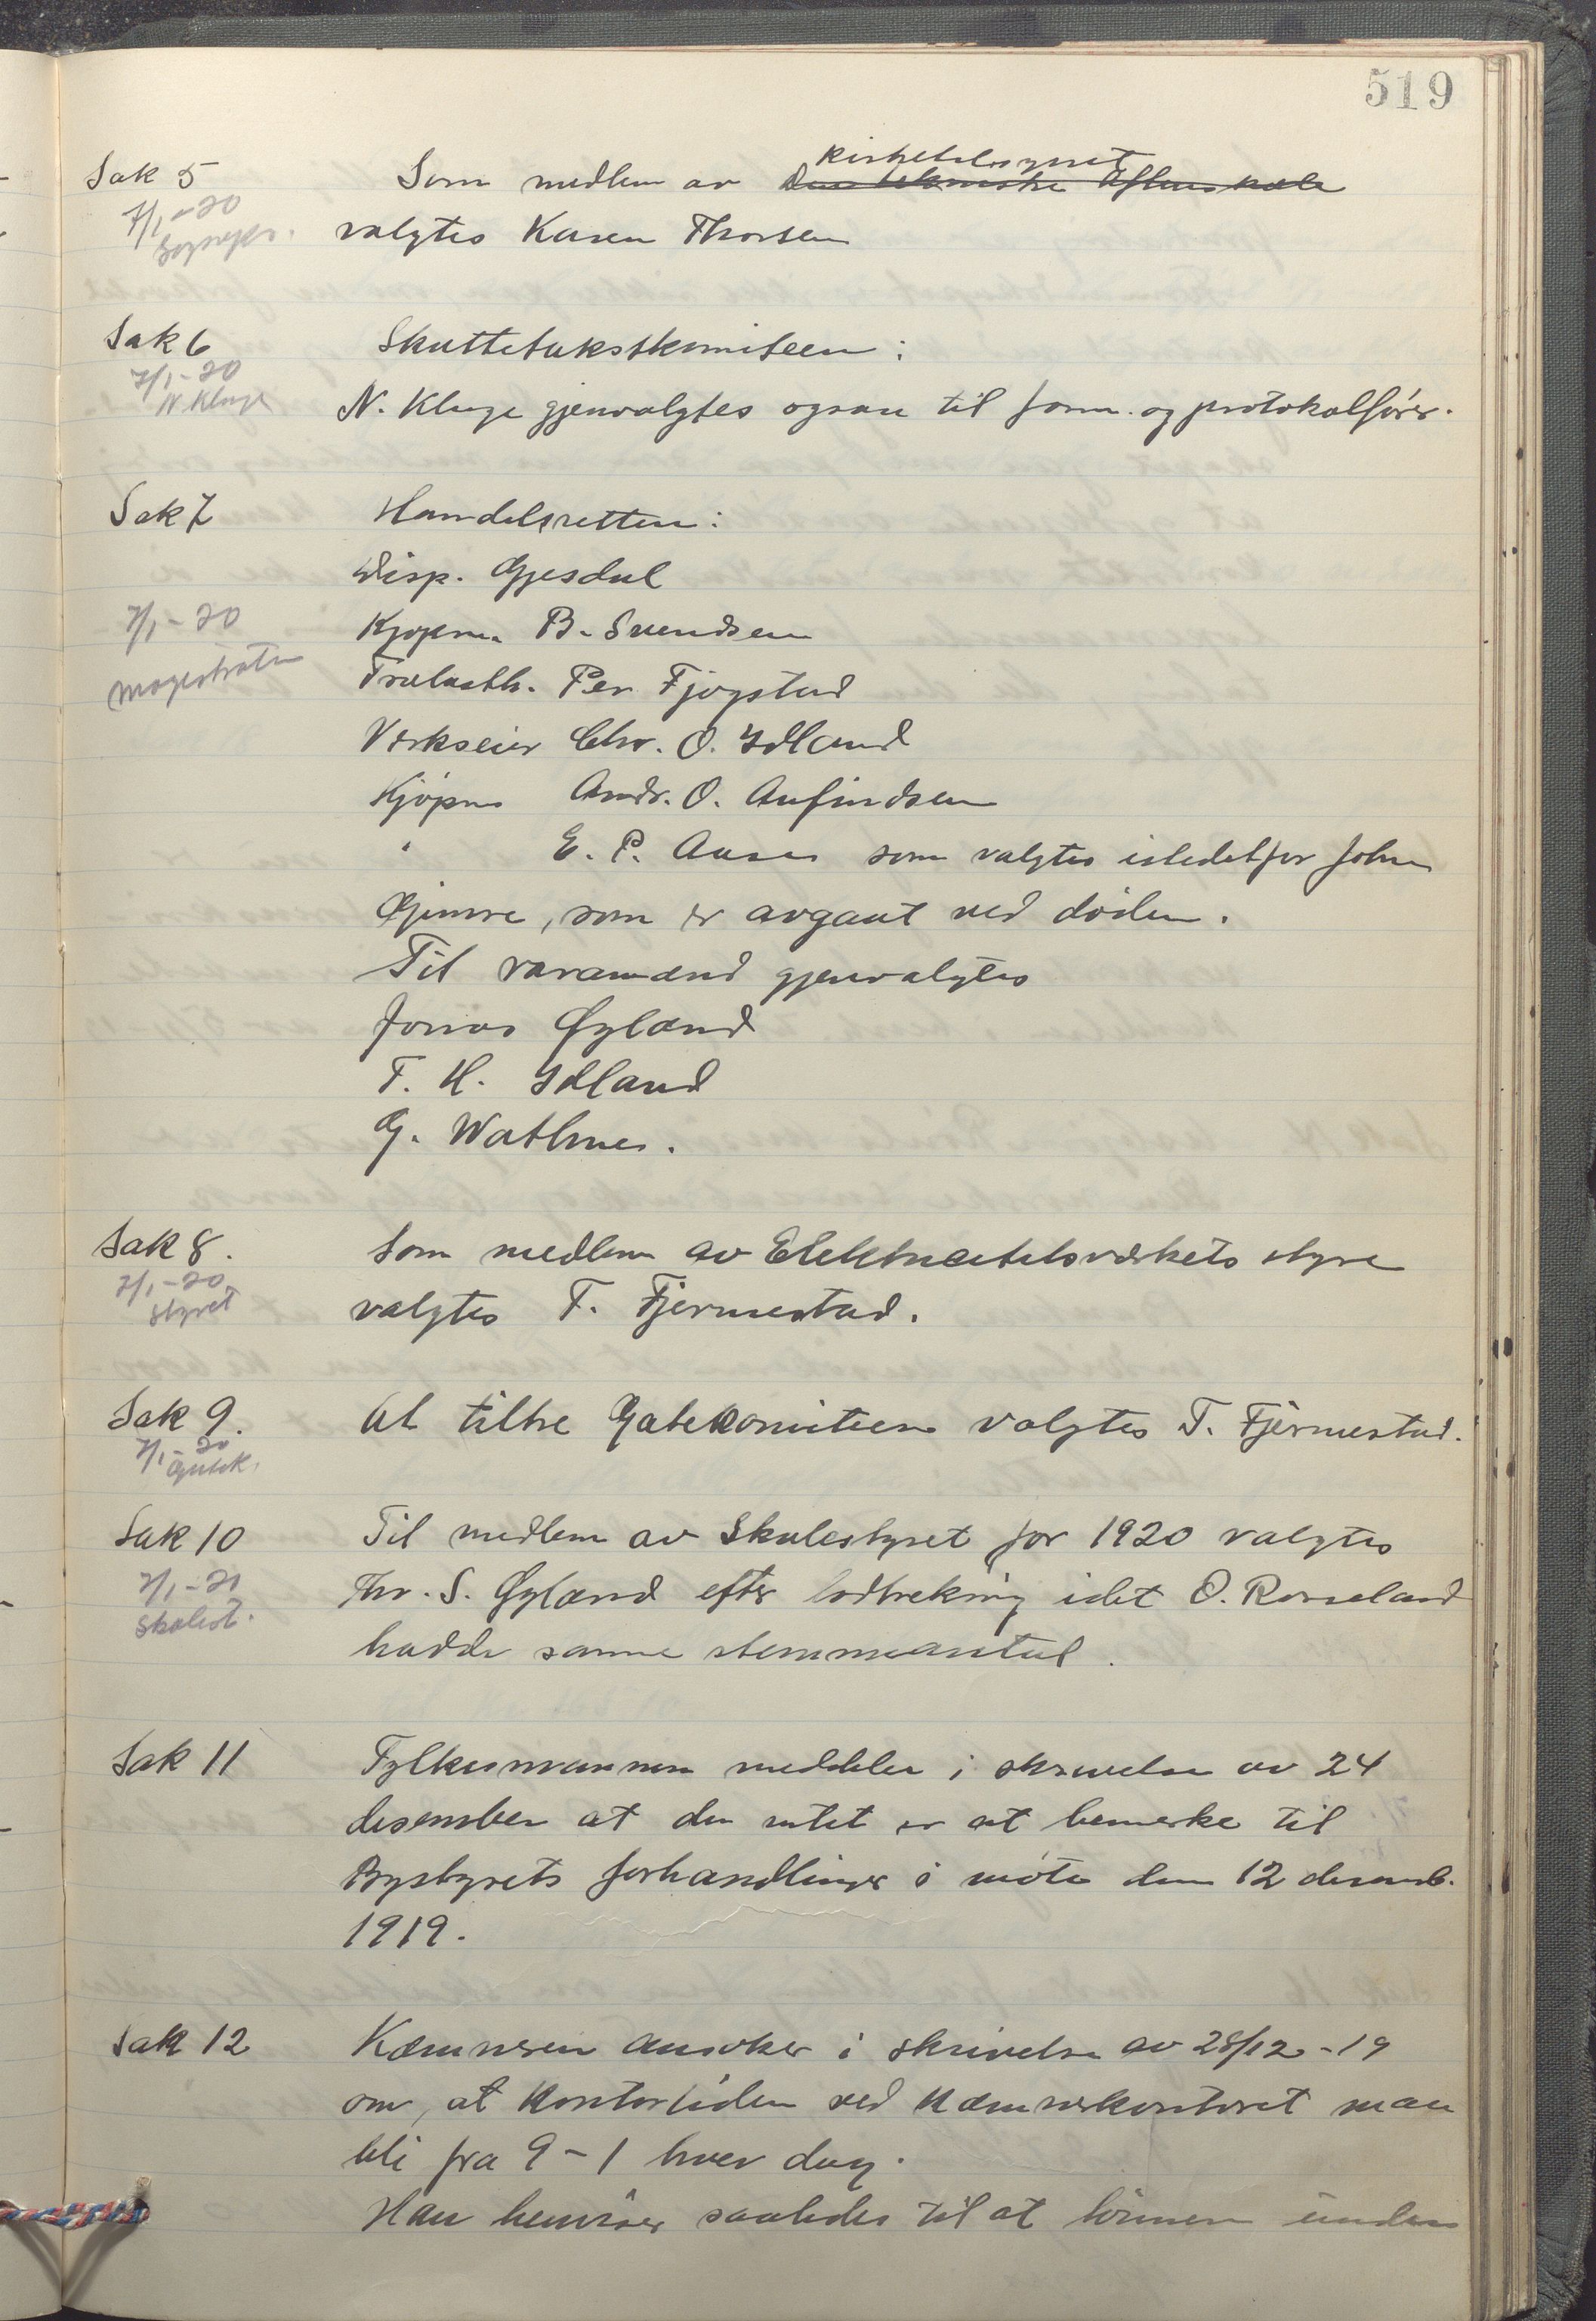 519
Sak 5
7/1-20
Som medlem av kirketilsynet
Den tekniske Aftenskole
valgtes Karen Thorsen
Sak 6
7/1-20
N. Kluge
Skattetakstkomiteen:
N. Kluge gjenvalgtes ogsaa til form. og protokolfører.
Sak 7
7/1-20
Magistraten
Handelsretten:
Disp. Gjesdal
Kjøpm. B. Svendsen
Trælasth. Per Fjogstad
Verkseier Chr. O. Idland
Kjøpm Andr. O. Anfindsen
" E. P. Aases som valgtes istedetfor John
Gjimre, som er avgaat ved døden.
Til varamænd gjenvalgtes
Jonas Øgland
T. H. Idland
G. Wathne.
Sak 8.
7/1-20
styret
Som medlem av Elektricitetsverkets styre
valgtes T. Fjermestad.
Sak 9.
7/1-20
Gatek.
At tiltre Gatekomiteen valgtes T. Fjermestad.
Sak 10
7/1-20
Skolest.
Til medlem av Skulestyret for 1920 valgtes
Thv. S. Øgland efter lodtrekning idet O. Rosseland
hadde samme stemmeantal.
Sak 11
Fylkesmannen meddeler i skrivelse av 24
desember at der intet er at bemerke til
Bystyrets forhandlinger i møte den 12 desemb.
1919.
Sak 12
Kæmneren ansøker i skrivelse av 28/12-19
om, at Kontortiden ved Kæmnerkontoret maa
bli fra 9-1 hver dag.
Han henviser saaledes til at lønnen under